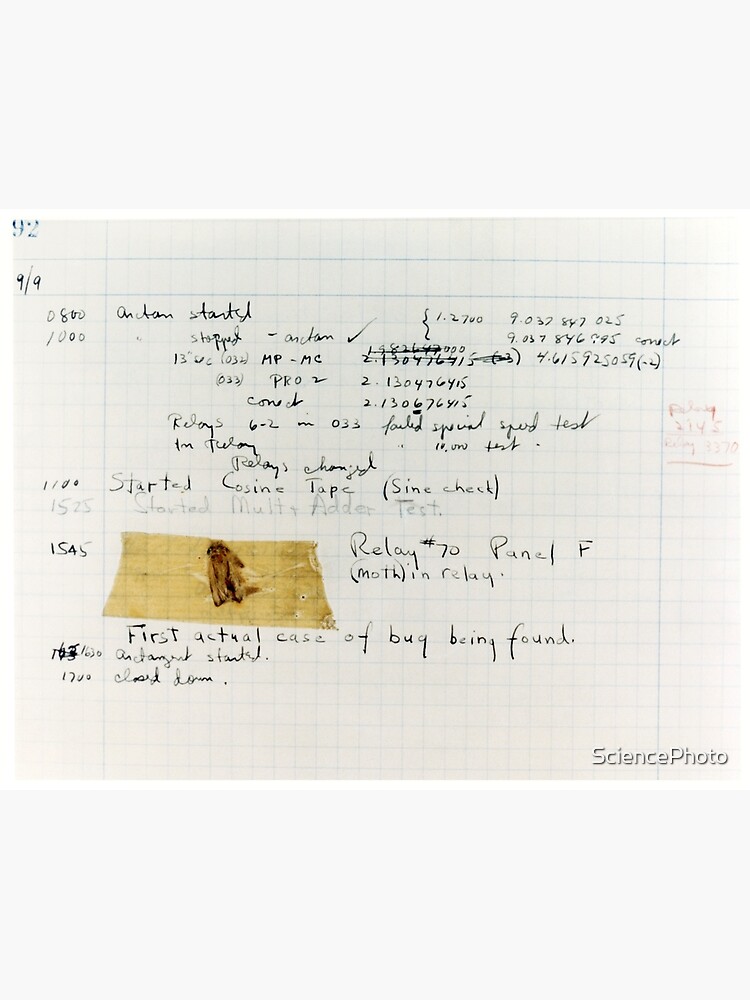 92
9/9
0800 arctan started { 1.2700 9.037 847 025
1000 " stopped - arctan ✓ 9.037 846 995 conect
13"uc (032) MP-MC 1.982647000 2.130476415 (-3) 4.615925059(-2)
(033) PRO 2 2.130476415
conect 2.130676415
Relays 6-2 in 033 failed special speed test
In Relay " 10,000 test.
Relays changed
Relay
3370
1100 Started Cosine Tape (Sine check)
1525 Started Mult + Adder Test.
1545 Relay #70 Panel F
(moth) in relay.
First actual case of bug being found.
1630 arctangent started.
1700 closed down.
SciencePhoto